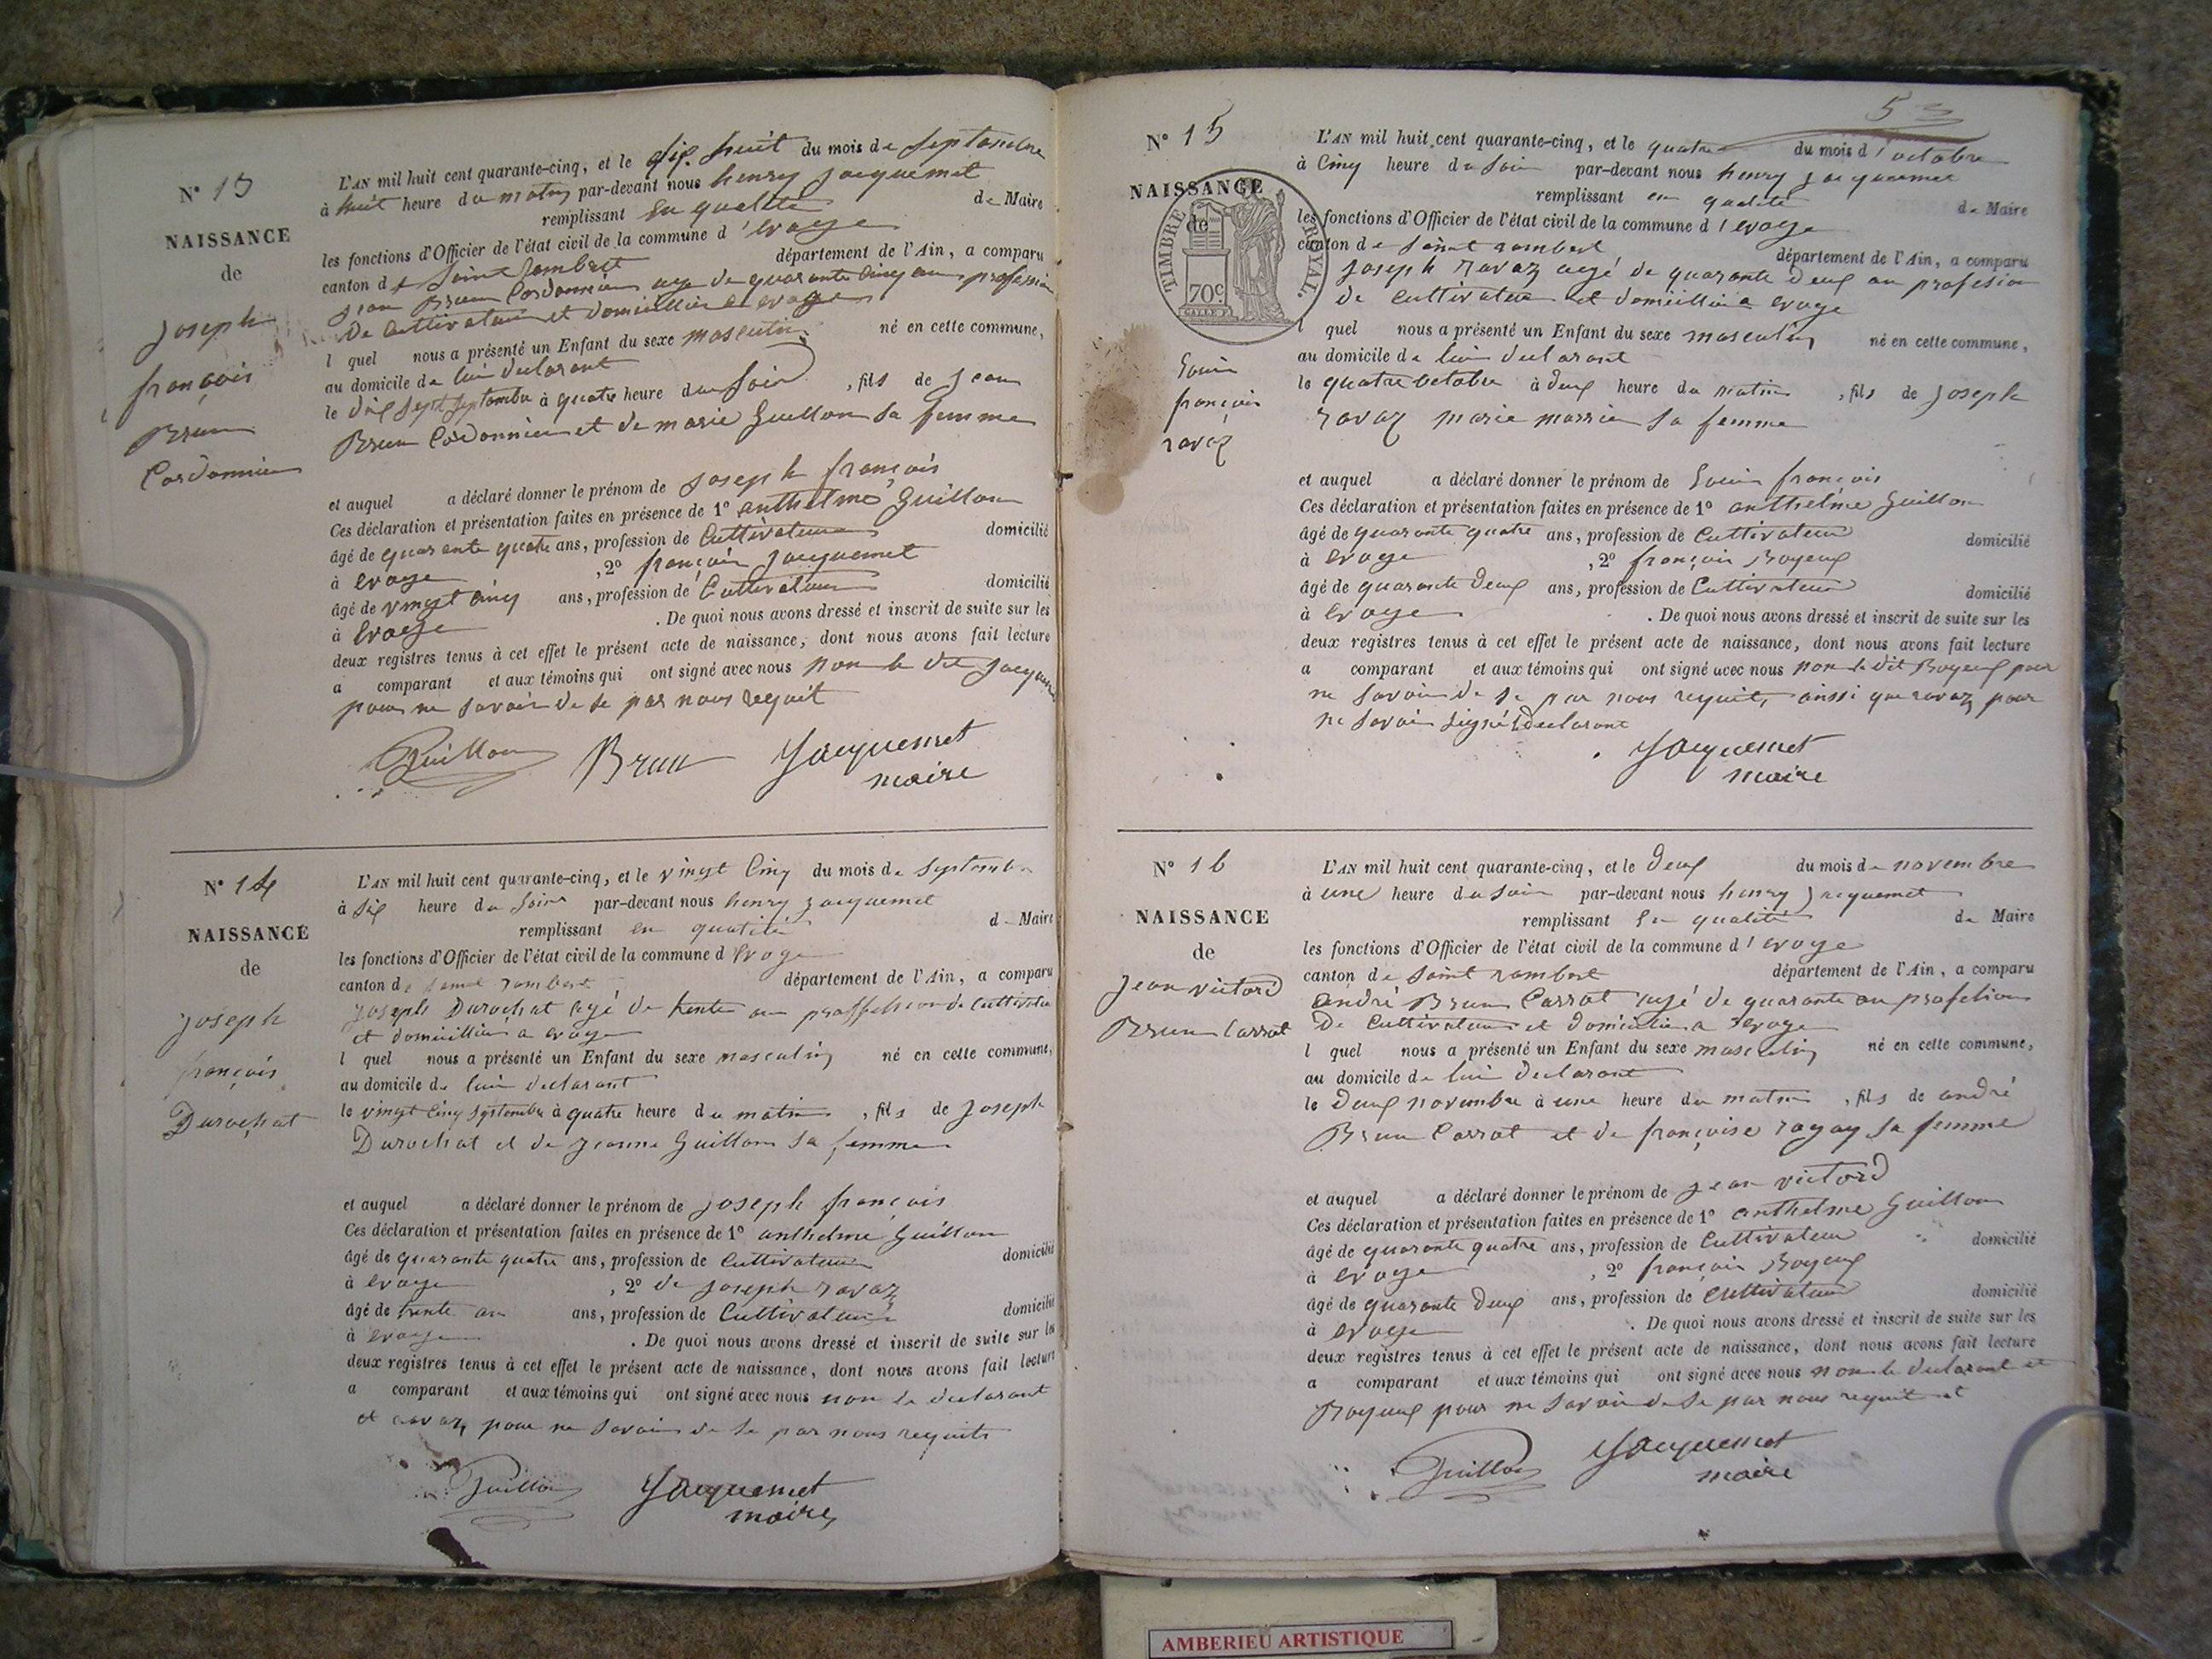 N° 13
NAISSANCE
de
joseph
françois
Brun
Cordonnier
L'AN mil huit cent quarante-cinq, et le dix huit du mois de septembre
à huit heure du matin par-devant nous henry jacquemet
remplissant en qualité de Maire
les fonctions d'Officier de l'état civil de la commune d'evoge
canton de Saint rambert département de l'Ain, a comparu
jean Brun Cordonnier age de quarante cinq an profession
De Cultivateur et domicillié a evoge
l quel nous a présenté un Enfant du sexe masculin né en cette commune,
au domicile de lui declarant
le dix sept septembre à quatre heure du soir, fils de jean
Brun Cordonnier et de marie Guillon sa femme
et auquel a déclaré donner le prénom de joseph françois
Ces déclaration et présentation faites en présence de 1° anthelme Guillon
âgé de quarante quatre ans, profession de Cultivateur domicilié
à evoge, 2° françois jacquemet
âgé de vingt cinq ans, profession de Cultivateur domicilié
à evoge. De quoi nous avons dressé et inscrit de suite sur les
deux registres tenus à cet effet le présent acte de naissance, dont nous avons fait lecture
a comparant et aux témoins qui ont signé avec nous non le dit jacquemet
pour ne savoir de se par nous requit
Guillon Brun Jacquemet
maire
N° 14
NAISSANCE
de
joseph
françois
Durochat
L'AN mil huit cent quarante-cinq, et le vingt cinq du mois de septembre
à six heure du soir par-devant nous henry jacquemet
remplissant en qualité de Maire
les fonctions d'Officier de l'état civil de la commune d evoge
canton de saint rambert département de l'Ain, a comparu
joseph Durochat agé de trente an de cultivateur
et domicillié a evoge
l quel nous a présenté un Enfant du sexe masculin né en cette commune,
au domicile de lui declarant
le vingt cinq septembre à quatre heure du matin, fils de joseph
Durochat et de jeanne Guillon sa femme
et auquel a déclaré donner le prénom de joseph françois
Ces déclaration et présentation faites en présence de 1° anthelme Guillon
âgé de quarante quatre ans, profession de Cultivateur domicilié
à evoge, 2° de joseph ravaz
âgé de trente an ans, profession de Cultivateur domicilié
à evoge. De quoi nous avons dressé et inscrit de suite sur les
deux registres tenus à cet effet le présent acte de naissance, dont nous avons fait lecture
a comparant et aux témoins qui ont signé avec nous non le declarant
et ravaz pour ne savoir de se par nous requits
Guillon Jacquemet
maire
53
N° 15
NAISSANCE
de
TIMBRE ROYAL.
70c
louis
françois
ravaz
L'AN mil huit cent quarante-cinq, et le quatre du mois d'octobre
à Cinq heure du soir par-devant nous henry jacquemet
remplissant en qualité de Maire
les fonctions d'Officier de l'état civil de la commune d'evoge
canton de saint rambert département de l'Ain, a comparu
joseph ravaz agé de quarante deux an profesion
de cultivateur et domicillié a evoge
l quel nous a présenté un Enfant du sexe masculin né en cette commune,
au domicile de lui declarant
le quatre octobre à deux heure du matin, fils de joseph
ravaz marie sa femme
et auquel a déclaré donner le prénom de louis françois
Ces déclaration et présentation faites en présence de 1° anthelme Guillon
âgé de quarante quatre ans, profession de Cultivateur domicilié
à evoge, 2° françois Boyeux
âgé de quarante deux ans, profession de Cultivateur domicilié
à evoge. De quoi nous avons dressé et inscrit de suite sur les
deux registres tenus à cet effet le présent acte de naissance, dont nous avons fait lecture
a comparant et aux témoins qui ont signé avec nous non le dit Boyeux pour
ne savoir de se par nous requit, ainsi que ravaz pour
ne savoir signé declarant
Jacquemet
maire
N° 16
NAISSANCE
de
jean victord
Brun Carrat
L'AN mil huit cent quarante-cinq, et le deux du mois de novembre
à une heure du soir par-devant nous henry jacquemet
remplissant en qualité de Maire
les fonctions d'Officier de l'état civil de la commune d'evoge
canton de saint rambert département de l'Ain, a comparu
andré Brun Carrat agé de quarante an
De Cultivateur et domicillié a evoge
l quel nous a présenté un Enfant du sexe masculin né en cette commune,
au domicile de lui declarant
le deux novembre à une heure du matin, fils de andré
Brun Carrat et de françoise sa femme
et auquel a déclaré donner le prénom de jean victord
Ces déclaration et présentation faites en présence de 1° anthelme Guillon
âgé de quarante quatre ans, profession de Cultivateur domicilié
à evoge, 2° françois Boyeux
âgé de quarante deux ans, profession de Cultivateur domicilié
à evoge. De quoi nous avons dressé et inscrit de suite sur les
deux registres tenus à cet effet le présent acte de naissance, dont nous avons fait lecture
a comparant et aux témoins qui ont signé avec nous non le declarant et
Boyeux pour ne savoir de se par nous requit et
Guillon Jacquemet
maire
AMBERIEU ARTISTIQUE